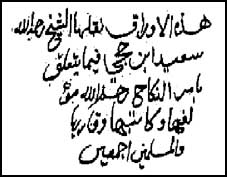 هذه الاوراق نقلها الشيخ رحمه الله
سعيد ابن حجي فيما يتعلق
بامر النكاح رحم الله مؤ
لفها وكاتبها وقاريها
والمسلمين اجمعين